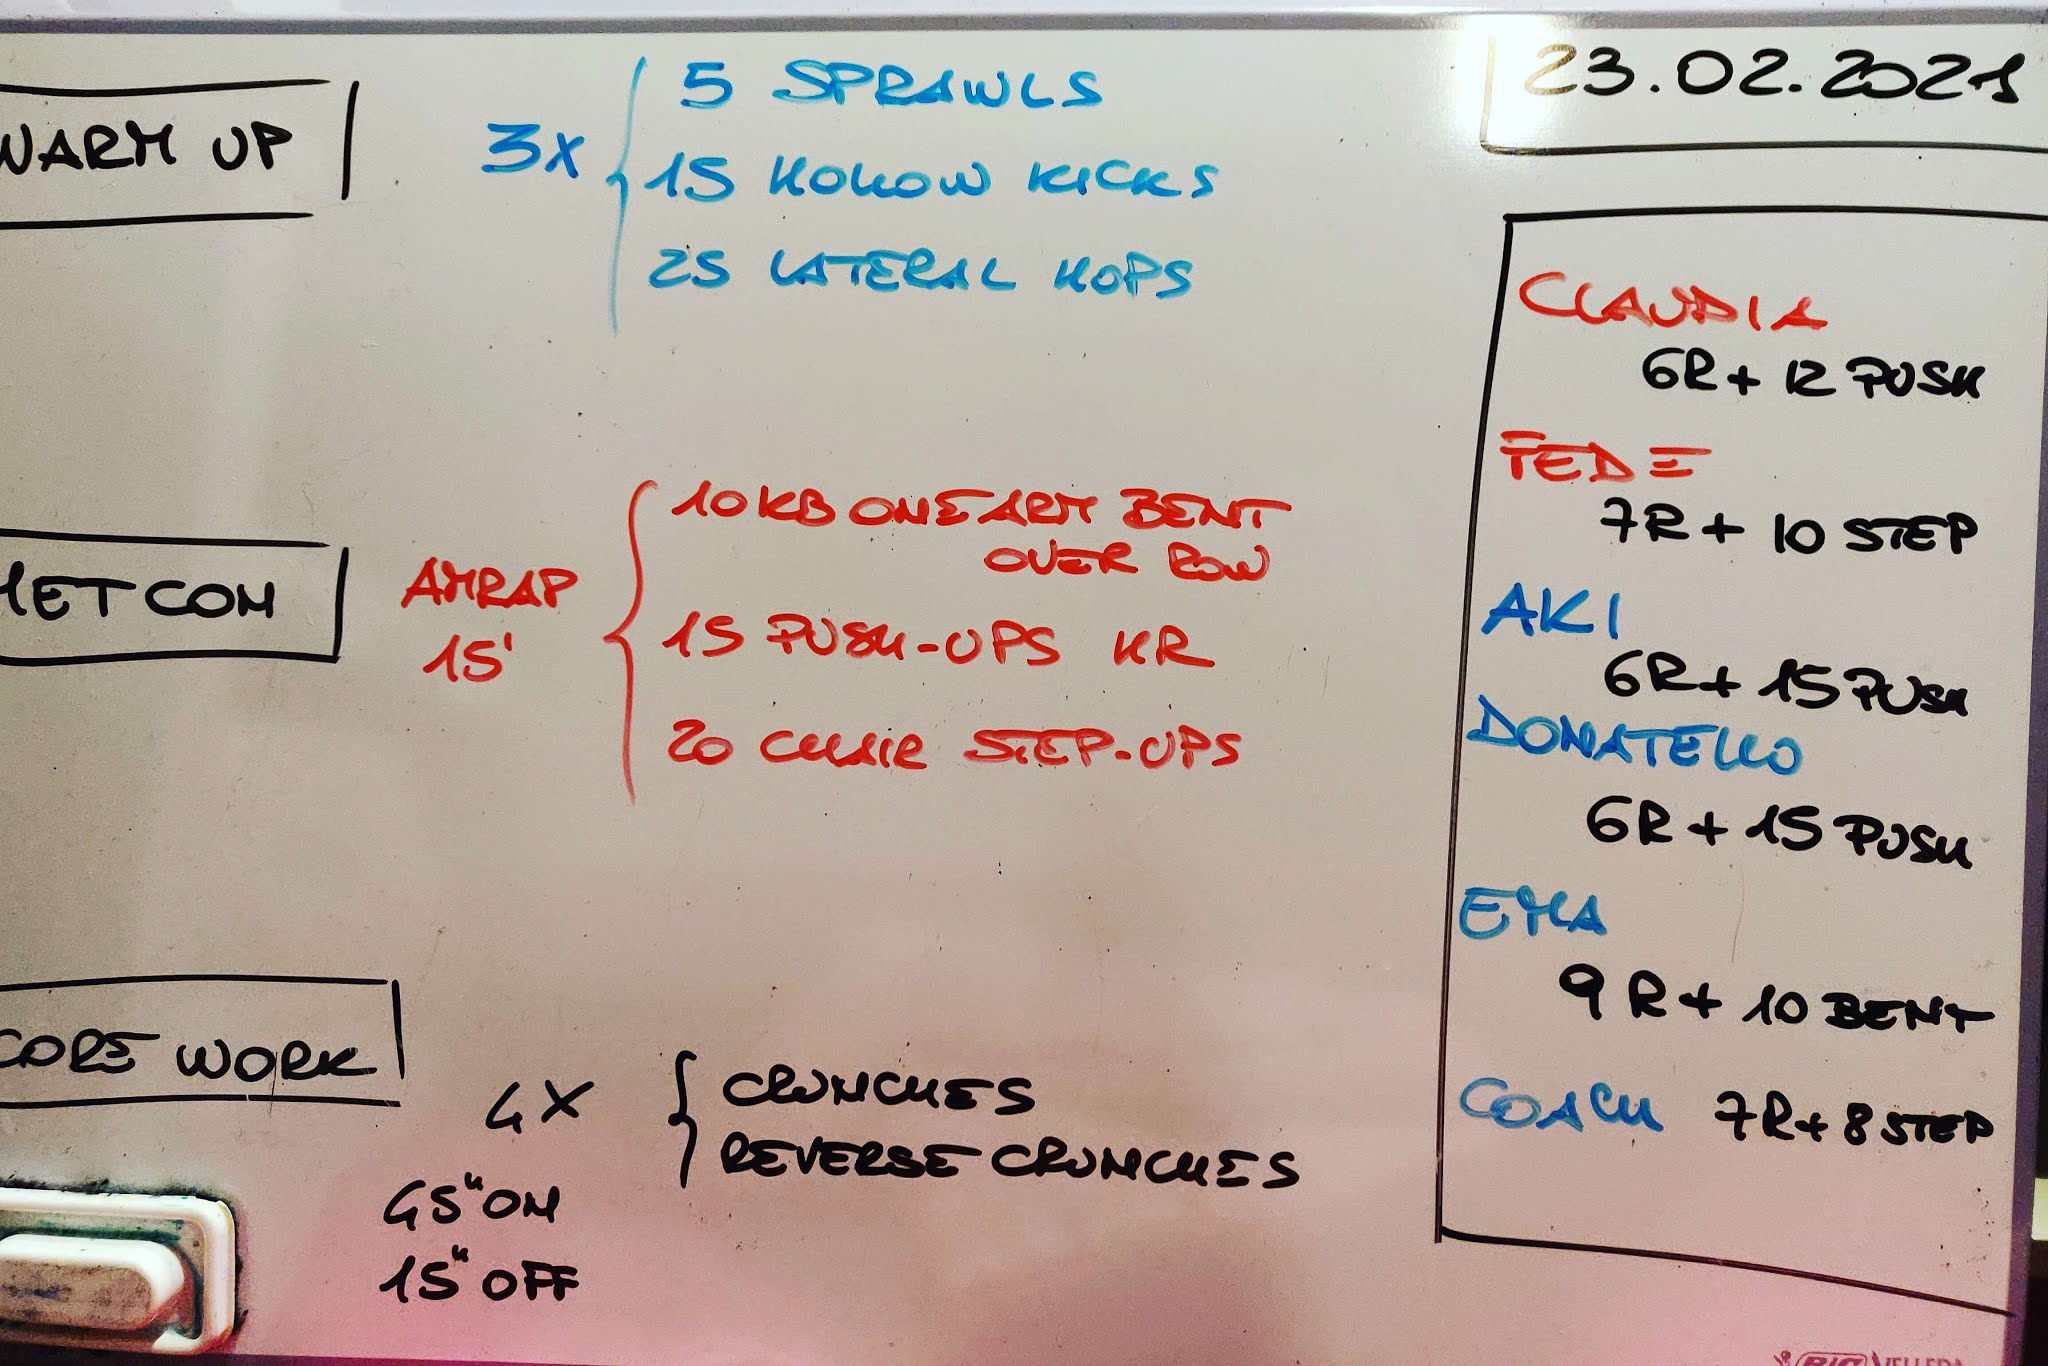 23.02.2021
WARM UP
3X
5 SPRAWLS
15 HOLLOW KICKS
25 LATERAL HOPS
METCON
AMRAP
15'
10 KB ONE ARM BENT
OVER ROW
15 PUSH-UPS HR
20 CHAIR STEP-UPS
CORE WORK
4X
45" ON
15" OFF
CRUNCHES
REVERSE CRUNCHES
CLAUDIA
6R + 12 PUSH
FEDE
7R + 10 STEP
AKI
6R + 15 PUSH
DONATELLO
6R + 15 PUSH
EMA
9R + 10 BENT
COACH 7R + 8 STEP
BIC VELLEDA